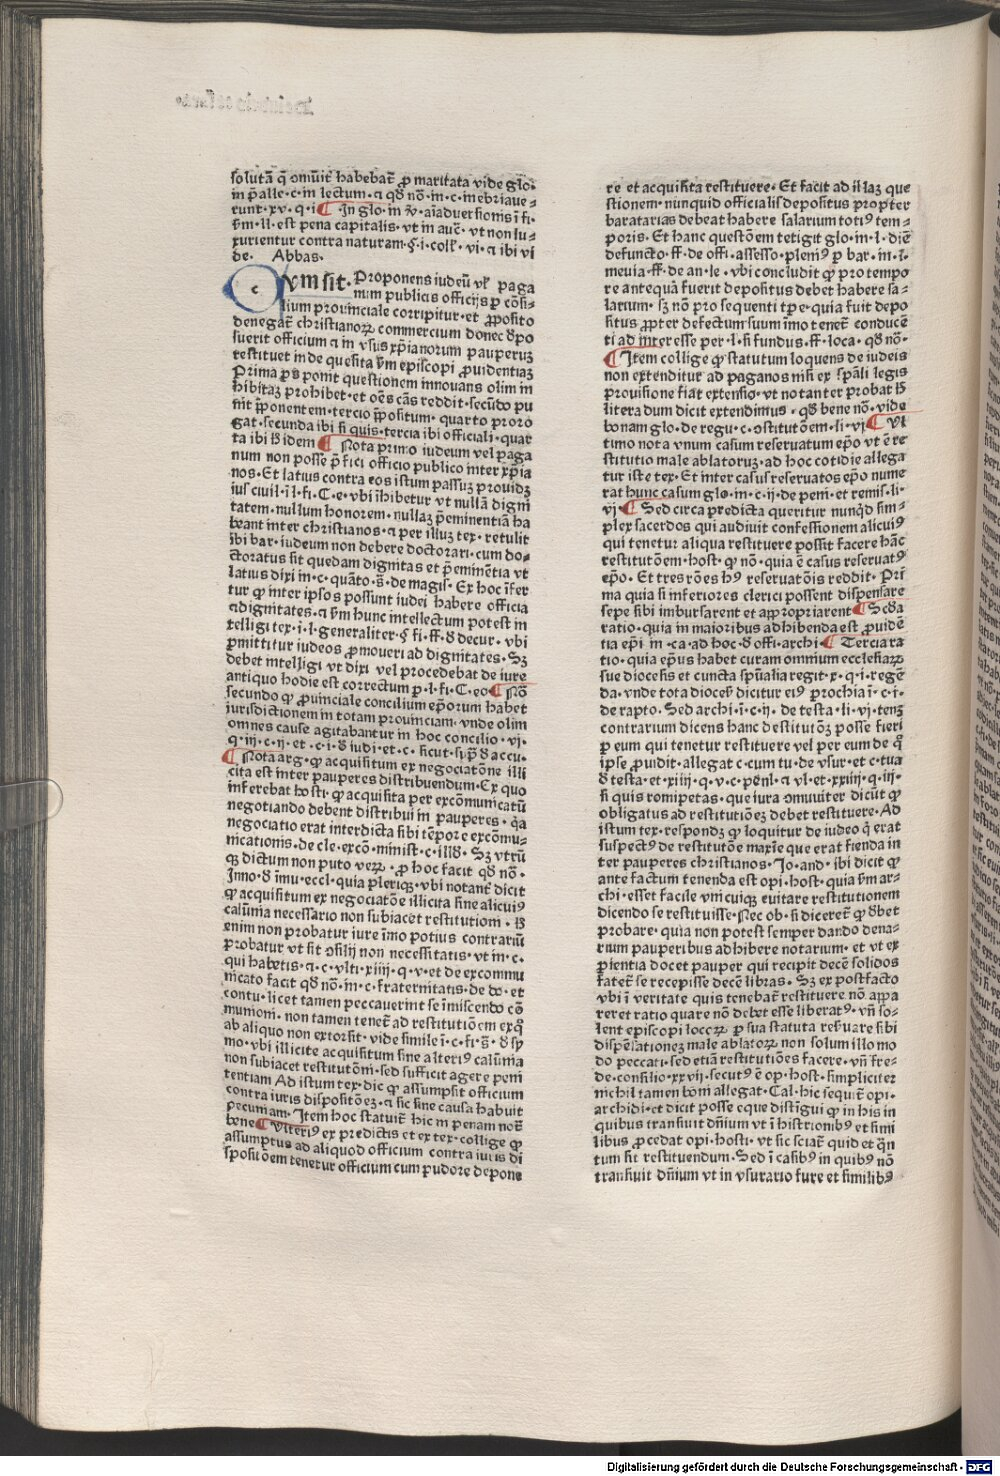 solutā q̄ om̄nit̄ habebat̄ ꝓ maritata vide glo·
in p̄alle·c·in lectum·a qḋ nō·in·c·inebriaue-
runt·xv·q·i ¶ In glo·in ꝟ·aīaduersionis ī fi·
ẜm·ll·est pena capitalis·vt in auc̄·vt non lu-
xurientur contra naturam·§·i·coll'·vi·a ibi vi
de· Abbas·
Cvm sit·Proponens iudeū vl' paga
num publicis officijs per cōsi-
lium prouinciale corripitur·et ꝓposito
denegat̄ christianoꝝ commercium donec ḋpo
suerit officium a in vsus xp̄ianorum pauperuꝫ
restituet inde quesita ẜm episcopi prouidentiaꝫ
Prima pꝰ ponit questionem innouans olim in
hibitaꝫ prohibet·et oēs cās reddit·secūdo pu
nit īponentem·tercio īpositum·quarto proro
gat·secunda ibi si quis·tercia ibi officiali·quar
ta ibi ḣ idem ¶ Nota primo iudeum vel paga
num non posse p̄fici officio publico inter xp̄ia
nos·Et latius contra eos istum passuꝫ prouidꝫ
ius ciuil·ī l·fi·C·e·vbi īhibetur vt nullā digni
tatem·nullum honorem·nullaꝫ p̄eminentiā ha
beant inter christianos·a per illuꝫ tex·retulit
ibi bar·iudeum non debere doctorari·cum do-
ctoratus sit quedam dignitas et p̄eminētia vt
latius dixi in·c·quāto·s̄·de magis·Ex hoc īfer
tur ꝙ inter ipsos possunt iudei habere officia
a dignitates·a ẜm hunc intellectum potest in
telligi tex·ī·l·generaliter·§ fi·ff·ḋ decur·vbi
ꝑmittitur iudeos ꝓmoueri ad dignitates·Sꝫ
debet intelligi vt dixi vel procedebat de iure
antiquo hodie est correctum ꝑ·l·fi·C·eo ¶ Nō
secundo ꝙ prouinciale concilium ep̄orum habet
iurisdictionem in totam prouinciam·vnde olim
omnes cause agitabantur in hoc concilio·vi·
q·iij·c·ij·et·c·i·ḋ iudi·et·c·sicut·sup̄·ḋ accu·
¶ Nota arg·ꝙ acquisitum ex negociatōne illi
cita est inter pauperes distribuendum·Ex quo
inferebat hosti·ꝙ acquisita per excōmunicatū
negotiando debent distribui in pauperes·q̄a
negociatio erat interdicta sibi tēpore excōmu-
nicationis·de cle·excō·minist·c·illḋ·Sꝫ vtrū
qꝫ dictum non puto veꝝ·ꝓ hoc facit qḋ nō·
Inno·ḋ īmu·eccl·quia pleriqꝫ·vbi notant̄ dicit
ꝙ acquisitum ex negociatōe illicita sine alicuiꝰ
calūnia necessario non subiacet restitutioni·ḣ
enim non probatur iure īmo potius contrariū
probatur vt sit ꝯsilij non necessitatis·vt in·c·
qui habetis·a·c·vlti·xiiij·q·v·et de excommu
nicato facit qḋ nō·in·c·fraternitatis·de do·et
contu·licet tamen peccauerint se īmiscendo cō
munioni·non tamen tenet̄ ad restitutiōem ex qͦ
ab aliquo non extorsit·vide simile ī·c·fi·s̄·ḋ sy
mo·vbi illicite acquisitum sine alteriꝰ calūnia
non subiacet restitutōni·sed sufficit agere peni
tentiam Ad istum tex·dic ꝙ assumpsit officium
contra iuris dispositōeꝫ·a sic sine causa habuit
pecuniam·Item hoc statuit̄ hic in penam not̄
bene ¶ Vlteriꝰ ex predictis et ex tex·collige ꝙ
assumptus ad aliquod officium contra iuris di
spositōem tenetur officium cum pudore depone
re et acquisita restituere·Et facit ad illaꝫ que
stionem·nunquid officialis depositus propter
baratarias debeat habere salarium totiꝰ tem-
poris·Et hanc questōem tetigit glo·in·l·diē
defuncto·ff·de offi·assesso·pleniꝰ ꝑ bar·in·l·
meuia·ff·de an·le·vbi concludit ꝙ pro tempo
re antequā fuerit depositus debet habere sa-
larium·sꝫ nō pro sequenti tꝑe·quia fuit depo
situs ꝓpter defectum suum īmo tenet̄ conducē
ti ad interesse per·l·si fundus·ff·loca·qḋ nō·
¶ Item collige ꝙ statutum loquens de iudeis
non extenditur ad paganos nisi ex sp̄ali legis
prouisione fiat extensio·vt notanter probat ḣ
litera dum dicit extendimus·qḋ bene nō·vide
bonam glo·de regu·c·ꝯstitutōem·li·vi ¶ Vl
timo nota vnum casum reservatum ep̄o vt ē re
stitutio male ablatoruꝫ·ad hoc cotidie allega
tur iste tex·Et inter casus reseruatos ep̄o nume
rat hunc casum glo·in·c·ij·de peni·et remis·li·
vj ¶ Sed circa predicta queritur nunqͥd sim-
plex sacerdos qui audiuit confessionem alicuiꝰ
qui tenetur aliqua restituere possit facere hāc
restitutōem·host·ꝙ nō·quia ē casus reseruatꝰ
ep̄o·Et tres rōes hꝰ reseruatōis reddit·Pri
ma quia si inferiores clerici possent dispensare
sepe sibi imbursarent et appropriarent ¶ Scḋa
ratio·quia in maioribus adhibenda est ꝓuidē
tia ep̄i·in·ca·ad hoc·ḋ offi·archi· ¶ Tercia ra
tio·quia ep̄us habet curam omnium ecclesiaꝝ
sue diocesis et cuncta sp̄ualia regit·x·q·i·regē
da·vnde tota dioceẜ dicitur eiꝰ prochia ī·c·i·
de rapto·Sed archi·ī·c·ij·de testa·li·vj·tenꝫ
contrarium dicens hanc destitutōꝫ posse fieri
ꝑ eum qui tenetur restituere vel per eum de qͦ
ipse ꝓuidit·allegat c·cum tu·de vsur·et c·tua
ḋ testa·et·xiiij·q·v·c·pēnl·a vl·et·xxiiij·q·iij·
si quis romipetas·que iura ꝯmuiter dicūt ꝙ
obligatus ad restitutiōeꝫ debet restituere·Ad
istum tex·respondꝫ ꝙ loquitur de iudeo q̄ erat
suspectꝰ de restitutōe maxīe que erat fienda in
ter pauperes christianos·Jo·and·ibi dicit ꝙ
ante factum tenenda est opi·host·quia ẜm ar-
chi·esset facile vnicuiqꝫ euitare restitutionem
dicendo se restituisse·Nec ob·si diceret̄ ꝙ ḋbet
probare·quia non potest semper dando dena-
rium pauperibus adhibere notarium·et vt ex
ꝑientia docet pauper qui recipit decē solidos
fatet̄ se recepisse decē libras·Sꝫ ex postfacto
vbi ī veritate quis tenebat̄ restituere nō appa
reret ratio quare nō debet esse liberatꝰ·vn̄ so-
lent episcopi locoꝝ ꝑ sua statuta res̄uare sibi
dispēsationeꝫ male ablatoꝝ non solum illo mo
do peccati·sed etiā restitutiōes facere·vn̄ fre-
de·consilio·xxvij·secutꝰ ē op·host·simpliciter
nichil tamen boni allegat·Cal·hic sequit̄ opi·
archidi·et dicit posse eque distīgui ꝙ in his in
quibus transiuit dn̄ium vt ī histrionibꝰ et simi
libus ꝓcedat opi·hosti·vt sic sciat̄ quid et q̄n
tum sit restituendum·Sed ī casibꝰ in quibꝰ nō
transiuit dn̄ium vt in vsurario fure et similibꝰ
Digitalisierung gefördert durch die Deutsche Forschungsgemeinschaft - DFG